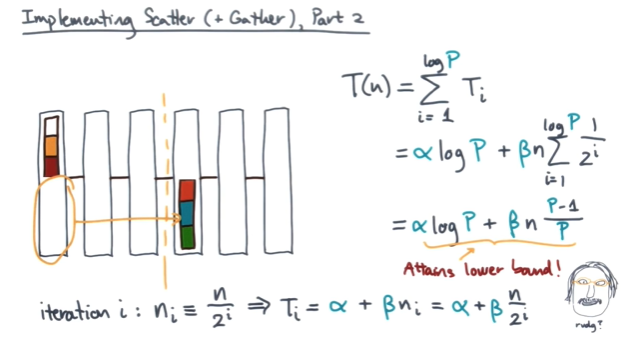 Implementing Scatter (+ Gather), Part 2
T(n) = ∑_{i=1}^{log P} T_i
= α log P + βn ∑_{i=1}^{log P} 1/2^i
= α log P + β n (P-1)/P
Attains lower bound!
iteration i : n_i ≡ n/2^i ⇒ T_i = α + βn_i = α + β n/2^i